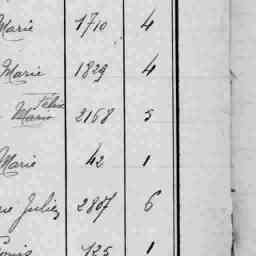 Marie 1710 4
Marie 1829 4
Félix
Marie 2168 5
Marie 42 1
Julie 2807 6
Louis 725 1